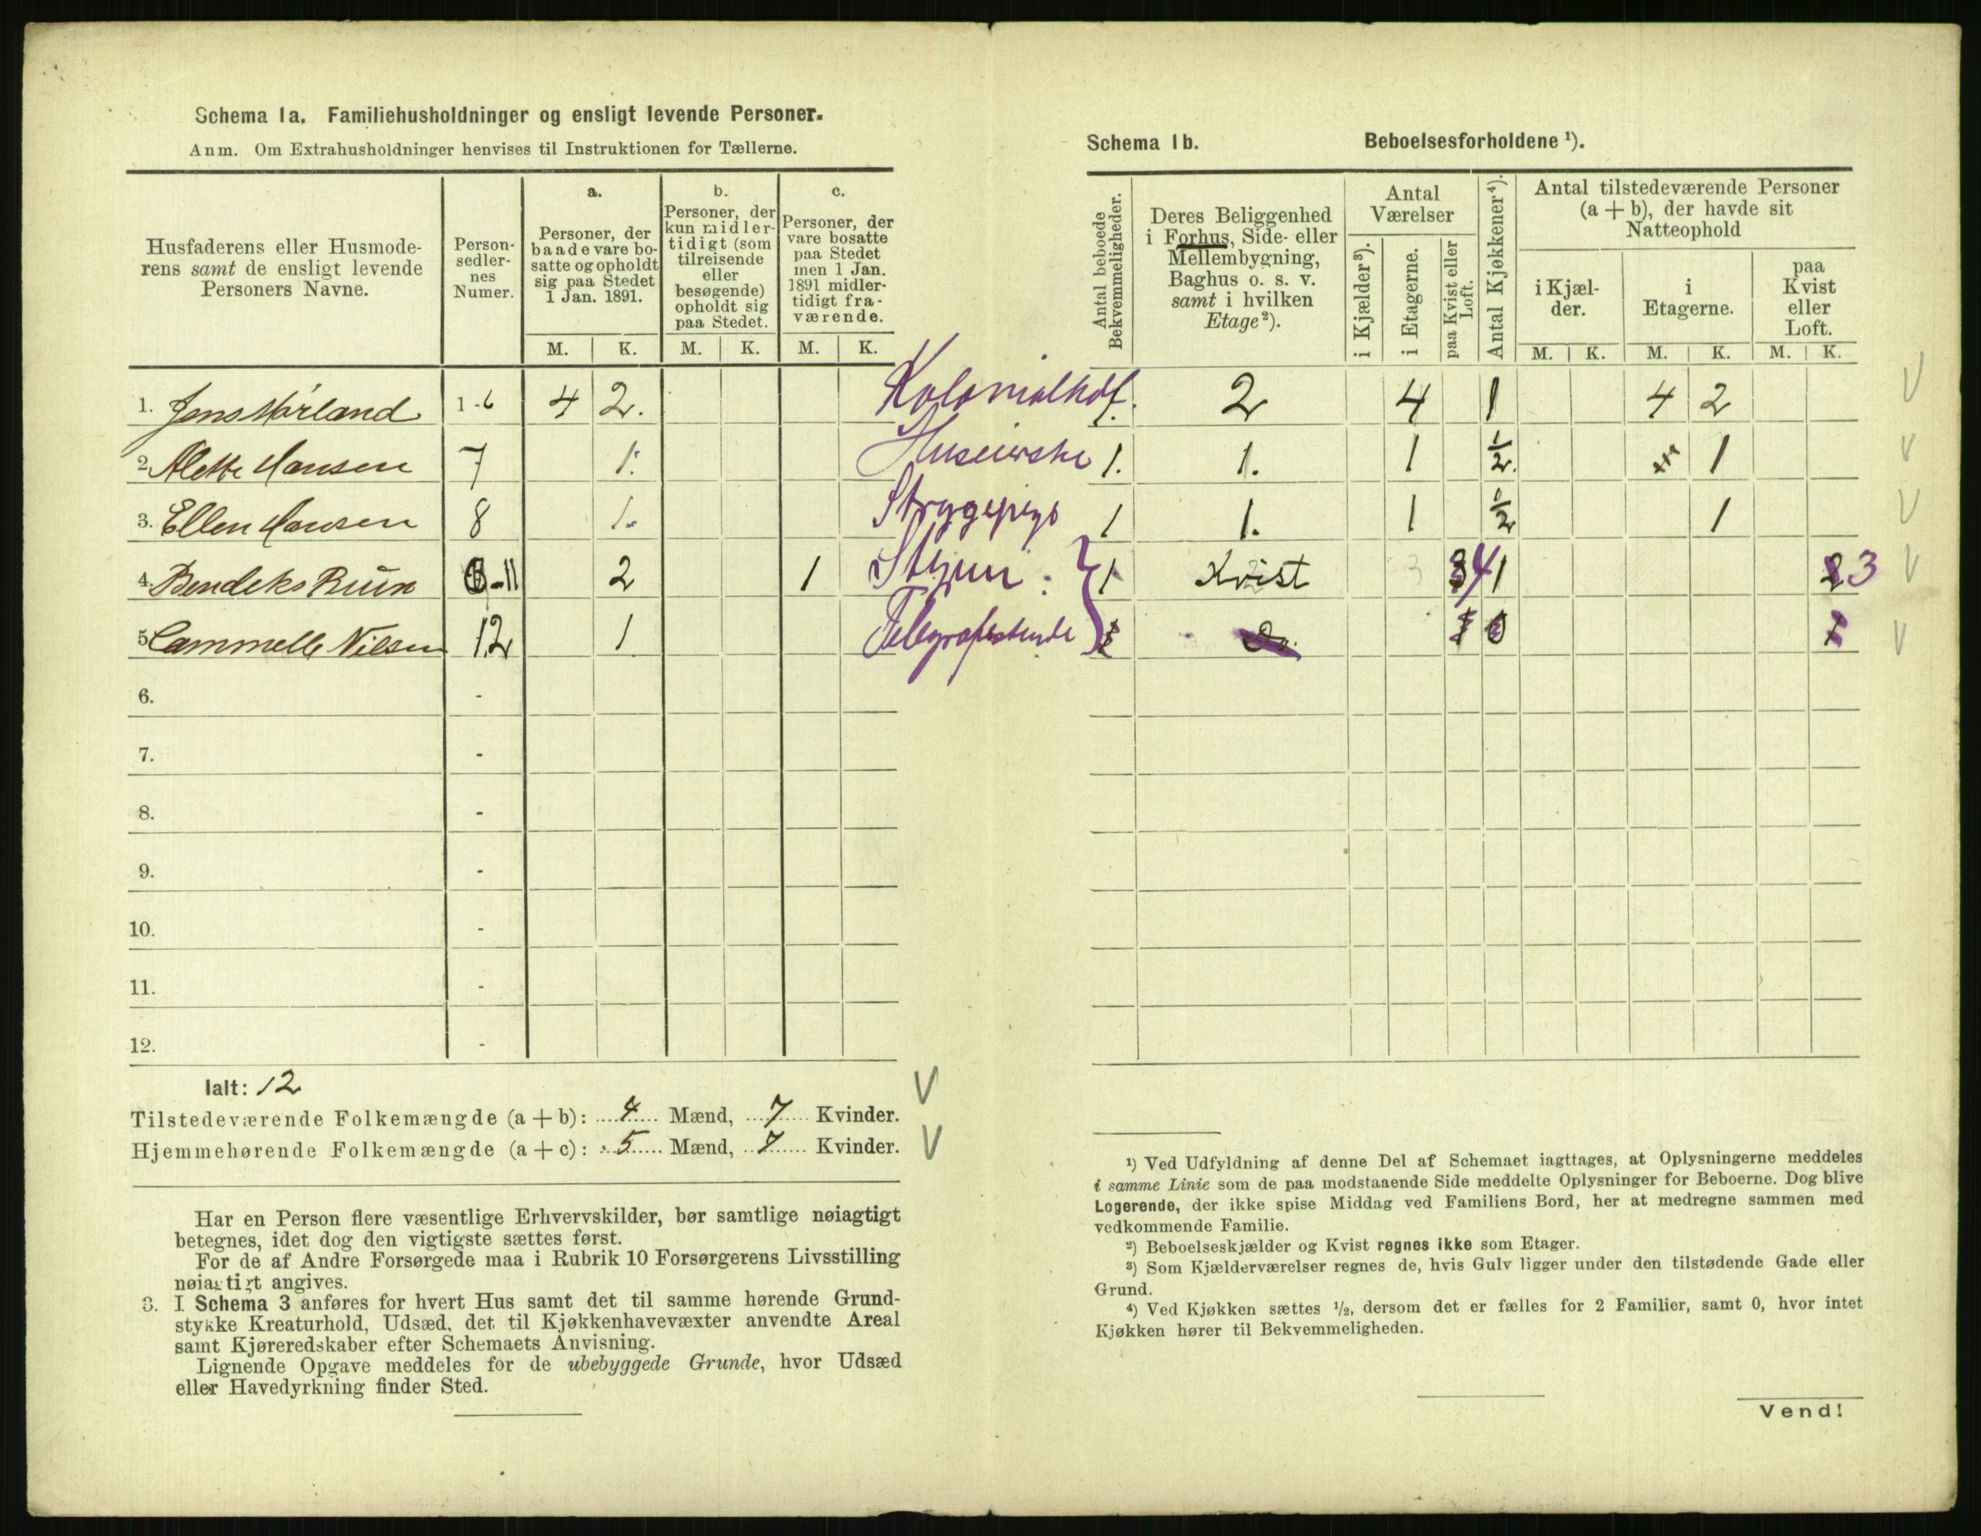 Schema 1a. Familiehusholdninger og ensligt levende Personer.
Anm. Om Extrahusholdninger henvises til Instruktionen for Tællerne.
Husfaderens eller Husmoderens samt de ensligt levende Personers Navne.
Personsedlernes Numer.
a.
Personer, der baade vare bosatte og opholdt sig paa Stedet 1 Jan. 1891.
b.
Personer, der kun midlertidigt (som tilreisende eller besøgende) opholdt sig paa Stedet.
c.
Personer, der vare bosatte paa Stedet men 1 Jan. 1891 midlertidigt fraværende.
M. K. M. K. M. K.
1. Jens Mørland 1-6 4 2. Kolonialhdl.
2. Alette Hansen 7 1.
3. Ellen Hansen 8 1. Strygepige
4. 11 2 1
5. Nilsen 12 1
6. -
7. -
8. -
9. -
10. -
11. -
12. -
Ialt: 12
Tilstedeværende Folkemængde (a + b): 4 Mænd, 7 Kvinder. V
Hjemmehørende Folkemængde (a + c): 5 Mænd, 7 Kvinder. V
Har en Person flere væsentlige Erhvervskilder, bør samtlige nøiagtigt
betegnes, idet dog den vigtigste sættes først.
For de af Andre Forsørgede maa i Rubrik 10 Forsørgerens Livsstilling
nøiagtigt angives.
3. I Schema 3 anføres for hvert Hus samt det til samme hørende Grund-
stykke Kreaturhold, Udsæd, det til Kjøkkenhavevæxter anvendte Areal
samt Kjøreredskaber efter Schemaets Anvisning.
Lignende Opgave meddeles for de ubebyggede Grunde, hvor Udsæd
eller Havedyrkning finder Sted.
Schema 1b. Beboelsesforholdene ¹).
Antal beboede Bekvemmeligheder.
Deres Beliggenhed i Forhus, Side- eller Mellembygning, Baghus o. s. v. samt i hvilken Etage²).
Antal Værelser
i Kjælder³).
i Etagerne.
paa Kvist eller Loft.
Antal Kjøkkener⁴).
Antal tilstedeværende Personer (a + b), der havde sit Natteophold
i Kjælder.
i Etagerne.
paa Kvist eller Loft.
M. K. M. K. M. K.
1. 2 4 1 4 2 V
1. 1. 1 ½. 1 V
1 1. 1 ½ 1 V
1 Kvist 4 1 3 V
V
¹) Ved Udfyldning af denne Del af Schemaet iagttages, at Oplysningerne meddeles
i samme Linie som de paa modstaaende Side meddelte Oplysninger for Beboerne. Dog blive
Logerende, der ikke spise Middag ved Familiens Bord, her at medregne sammen med
vedkommende Familie.
²) Beboelseskjælder og Kvist regnes ikke som Etager.
³) Som Kjælderværelser regnes de, hvis Gulv ligger under den tilstødende Gade eller
Grund.
⁴) Ved Kjøkken sættes ½, dersom det er fælles for 2 Familier, samt 0, hvor intet
Kjøkken hører til Bekvemmeligheden.
Vend!